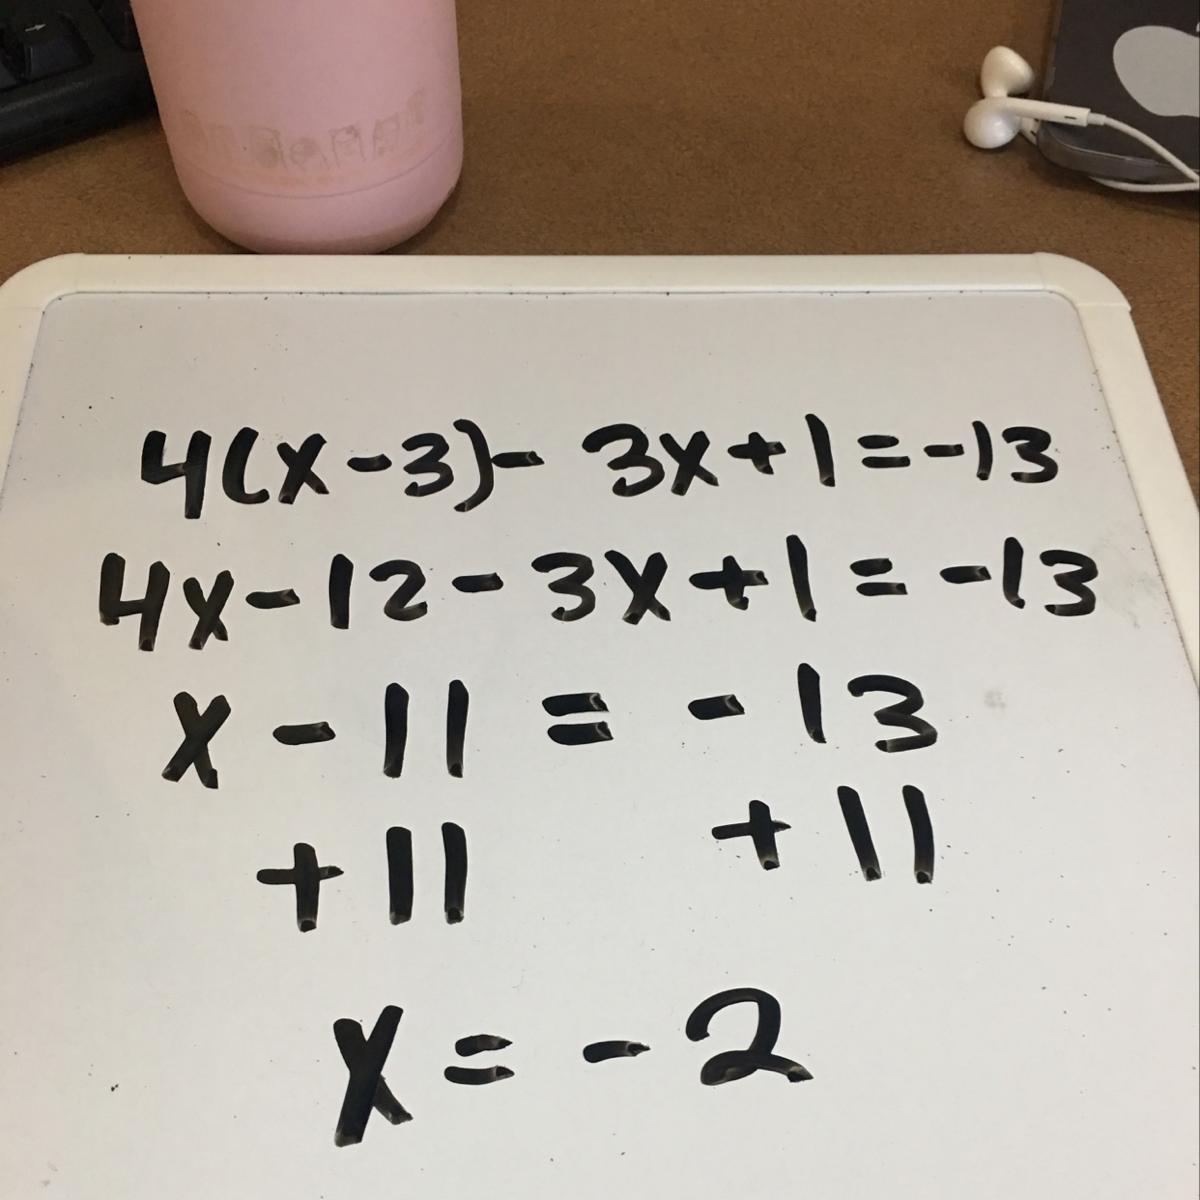 4(x-3)- 3x+1=-13
4x-12-3x+1=-13
x-11=-13
+11 +11
x=-2